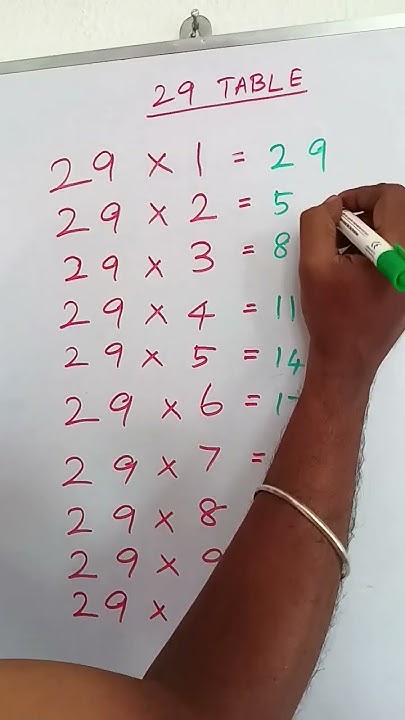 29 TABLE
29 × 1 = 29
29 × 2 = 5
29 × 3 = 8
29 × 4 = 11
29 × 5 = 14
29 × 6 = 1
29 × 7 =
29 × 8
29 × 9
29 ×